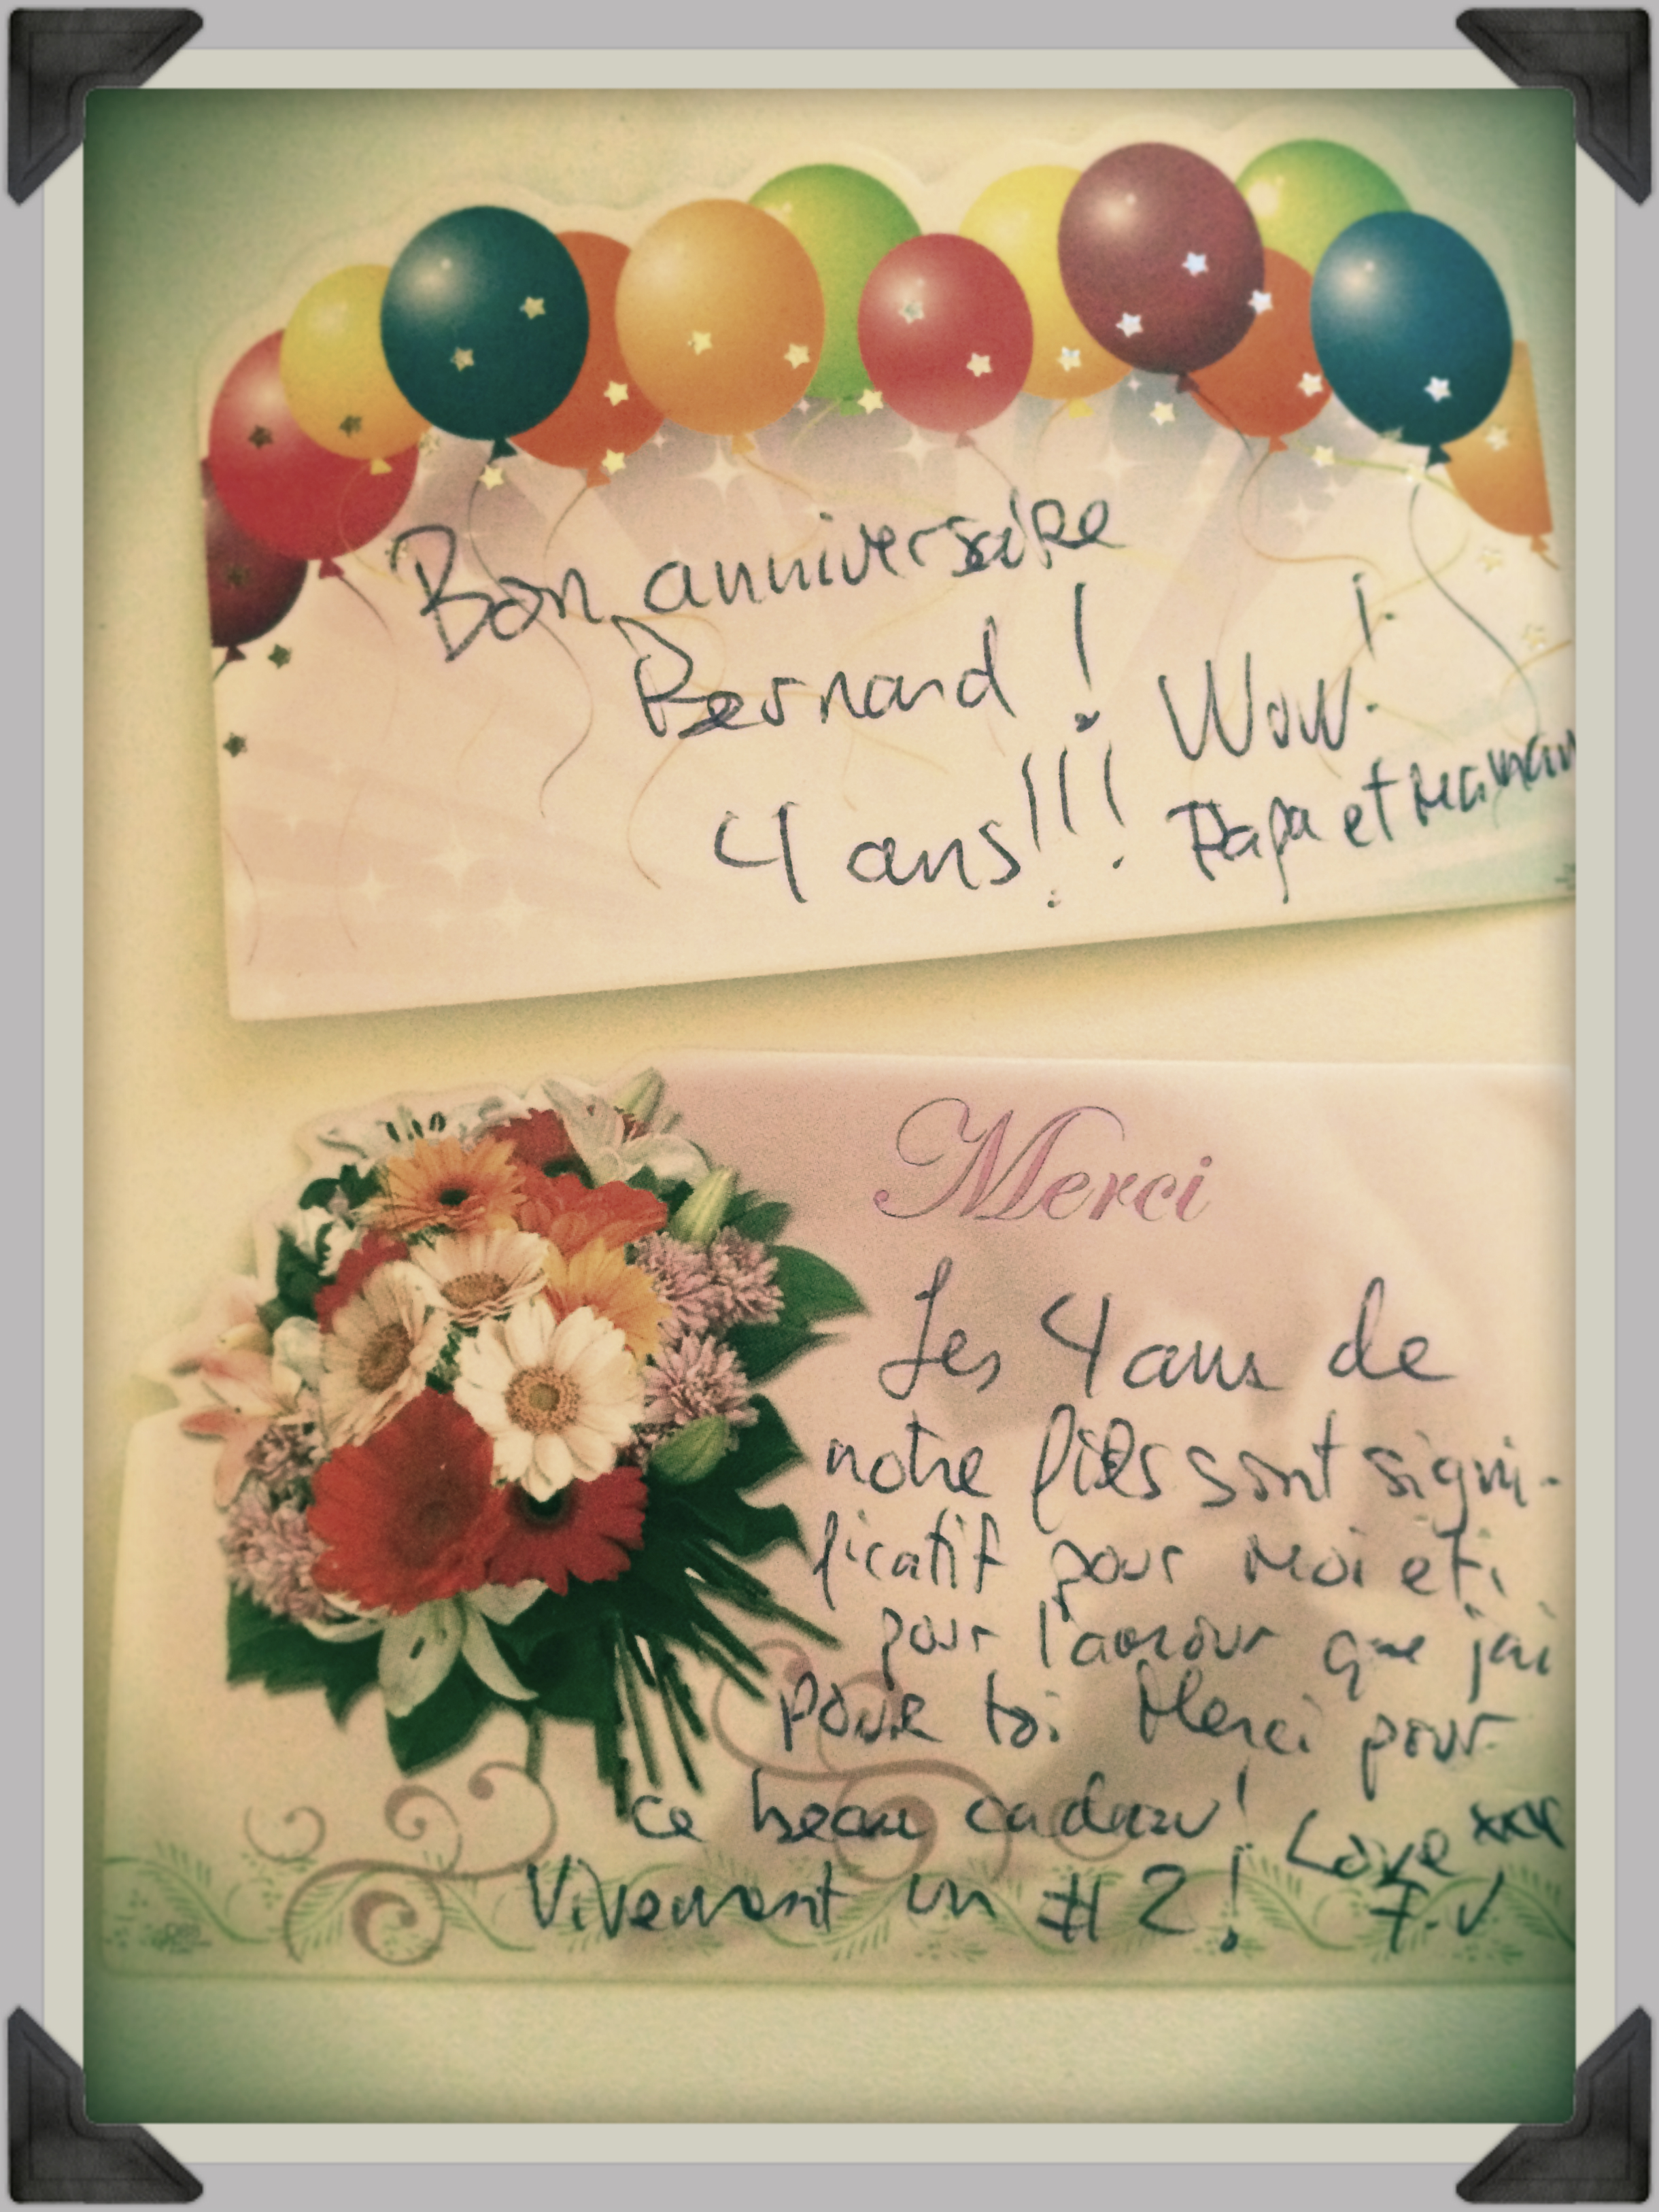 Bon anniversaire
Bernard ! Wow !
4 ans!!! Papa et Maman
Merci
Les 4 ans de
notre fils sont signi-
ficatif pour moi et
pour l'amour que j'ai
pour toi Merci pour
ce beau cadeau! Love xxx
Vivement un #2! F.V